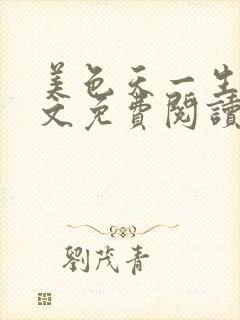 美色天一生
文免費閱讀
劉茂青